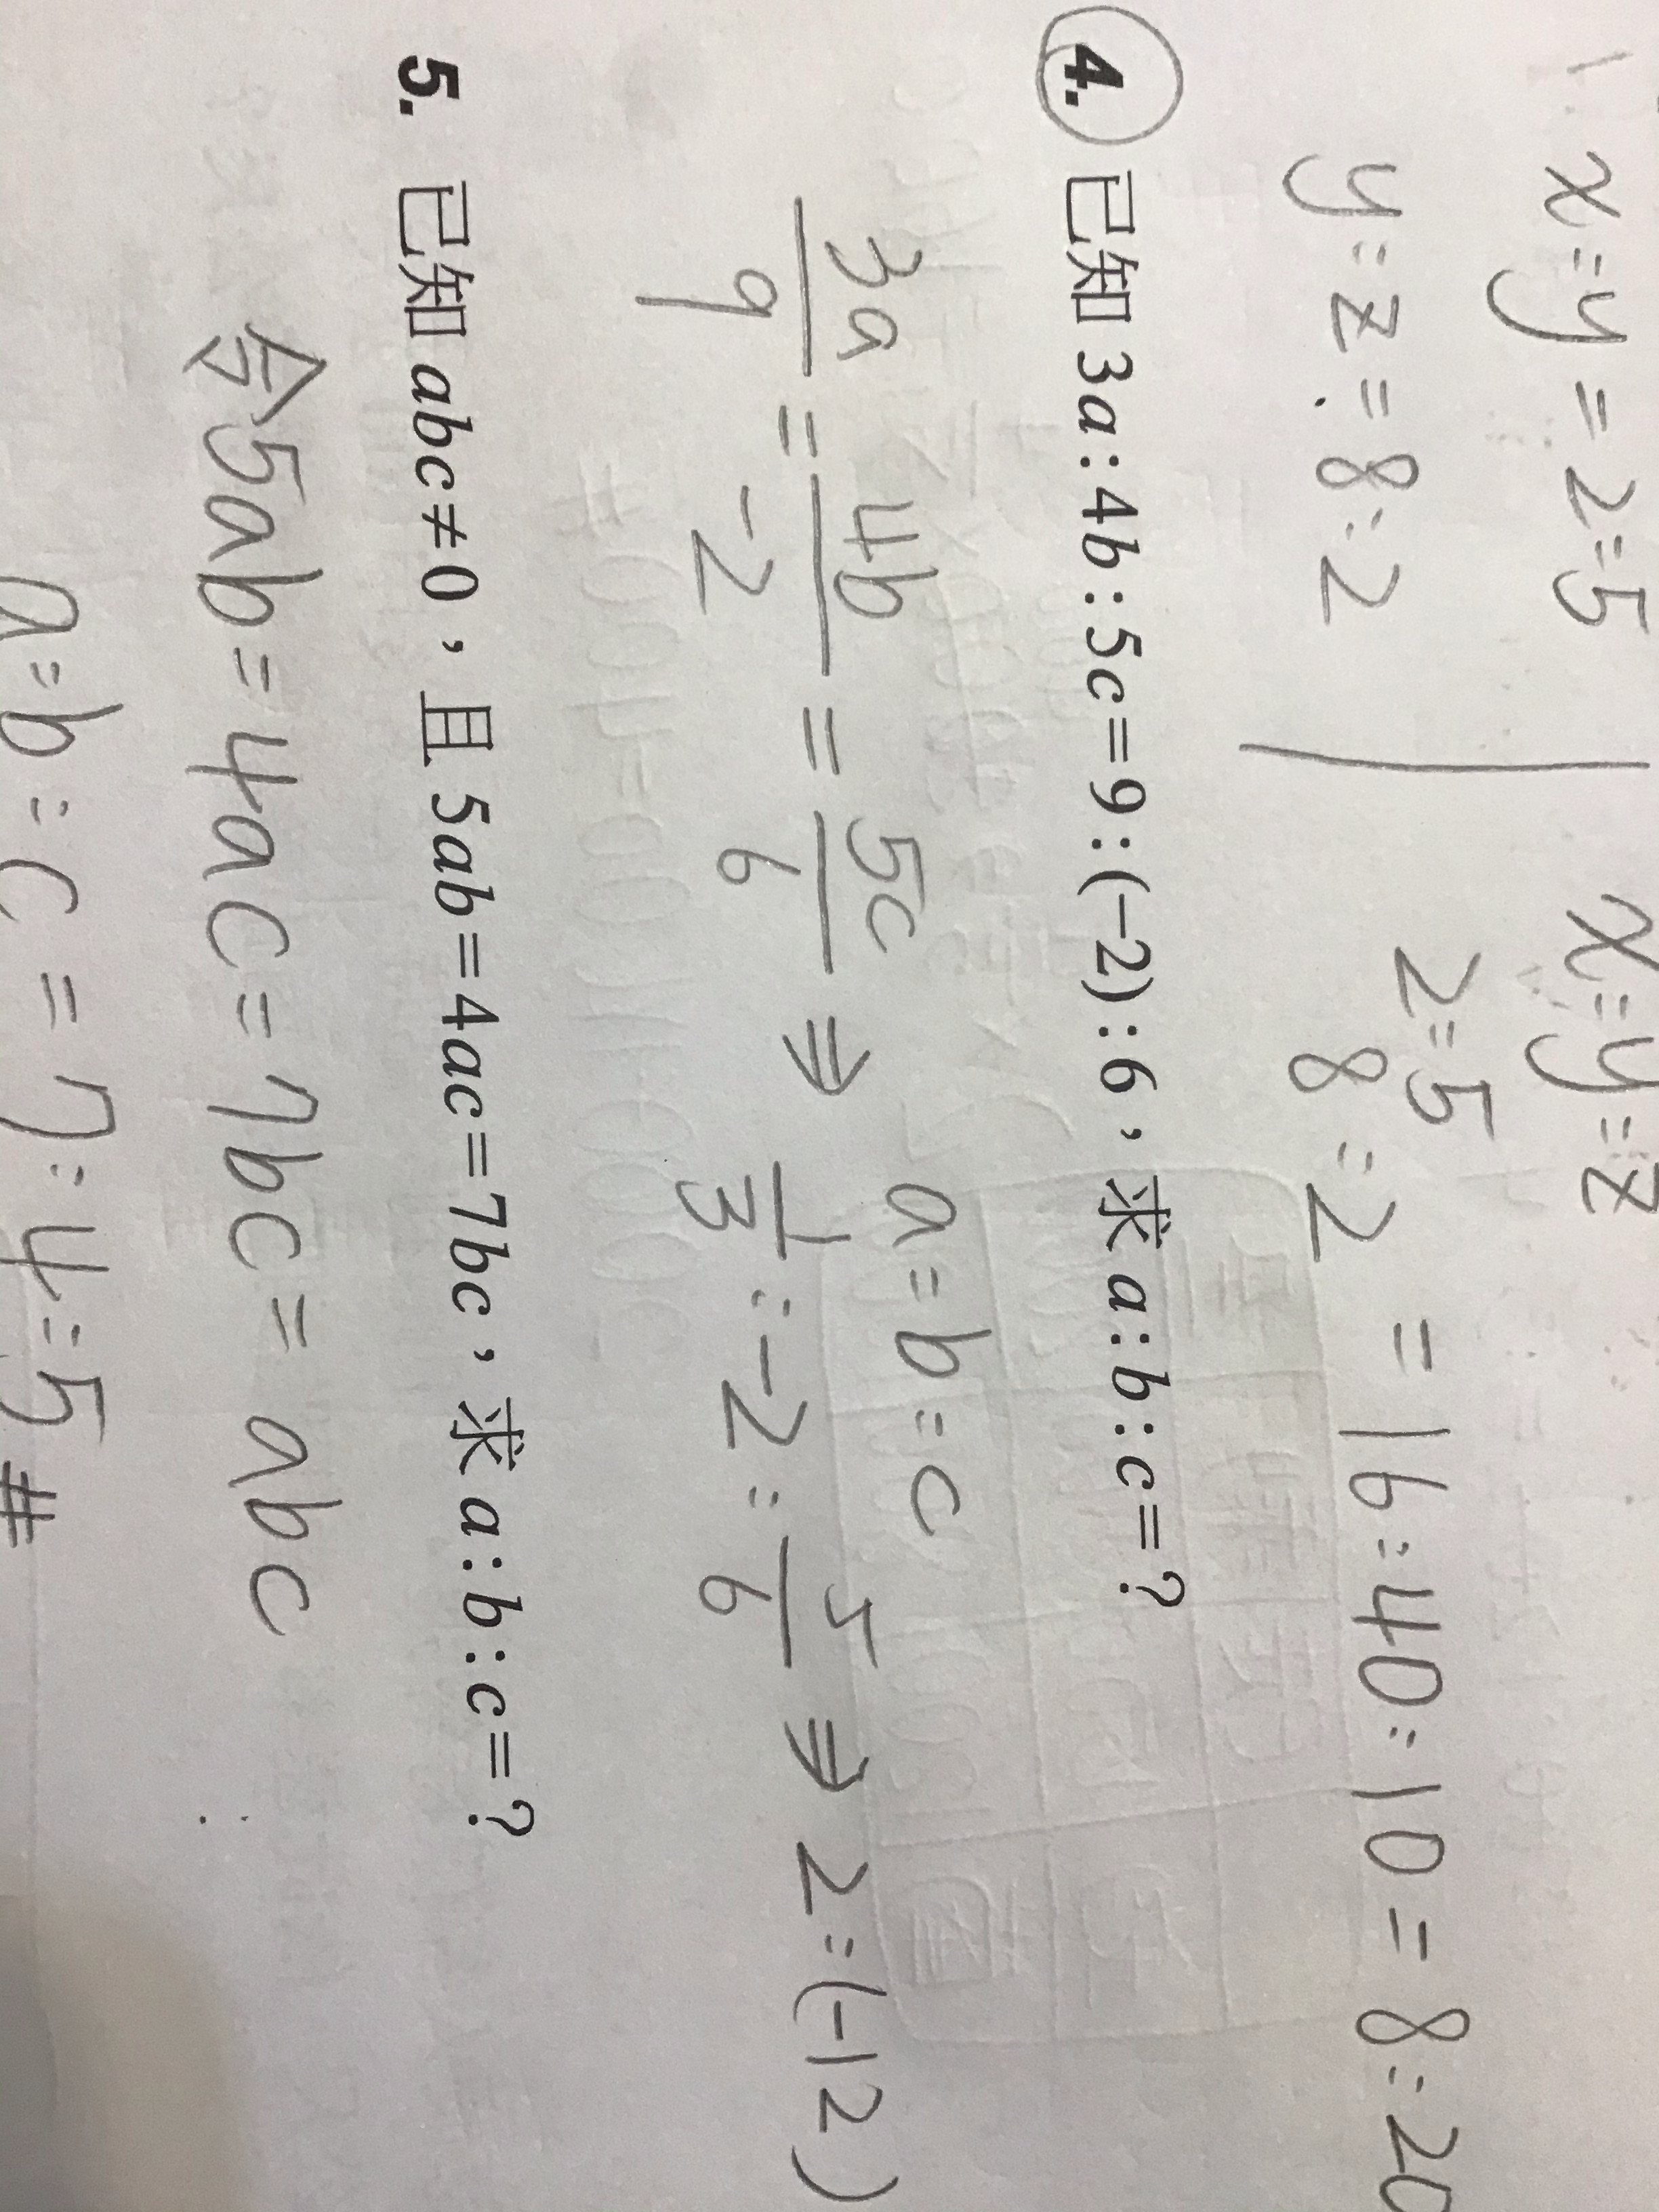 x:y=2:5
x:y:z
y:z=8:2
2:5
8:2
=16:40:10=8:20
4. 已知 3a:4b:5c=9:(-2):6，求 a:b:c=?
a:b:c
3a/9 = 4b/-2 = 5c/6 ⇒ 1/3:-2:5/6 ⇒ 2:(-12)
5. 已知 abc≠0，且 5ab=4ac=7bc，求 a:b:c=?
令5ab=4ac=7bc=abc
a:b:c=7:4:5#